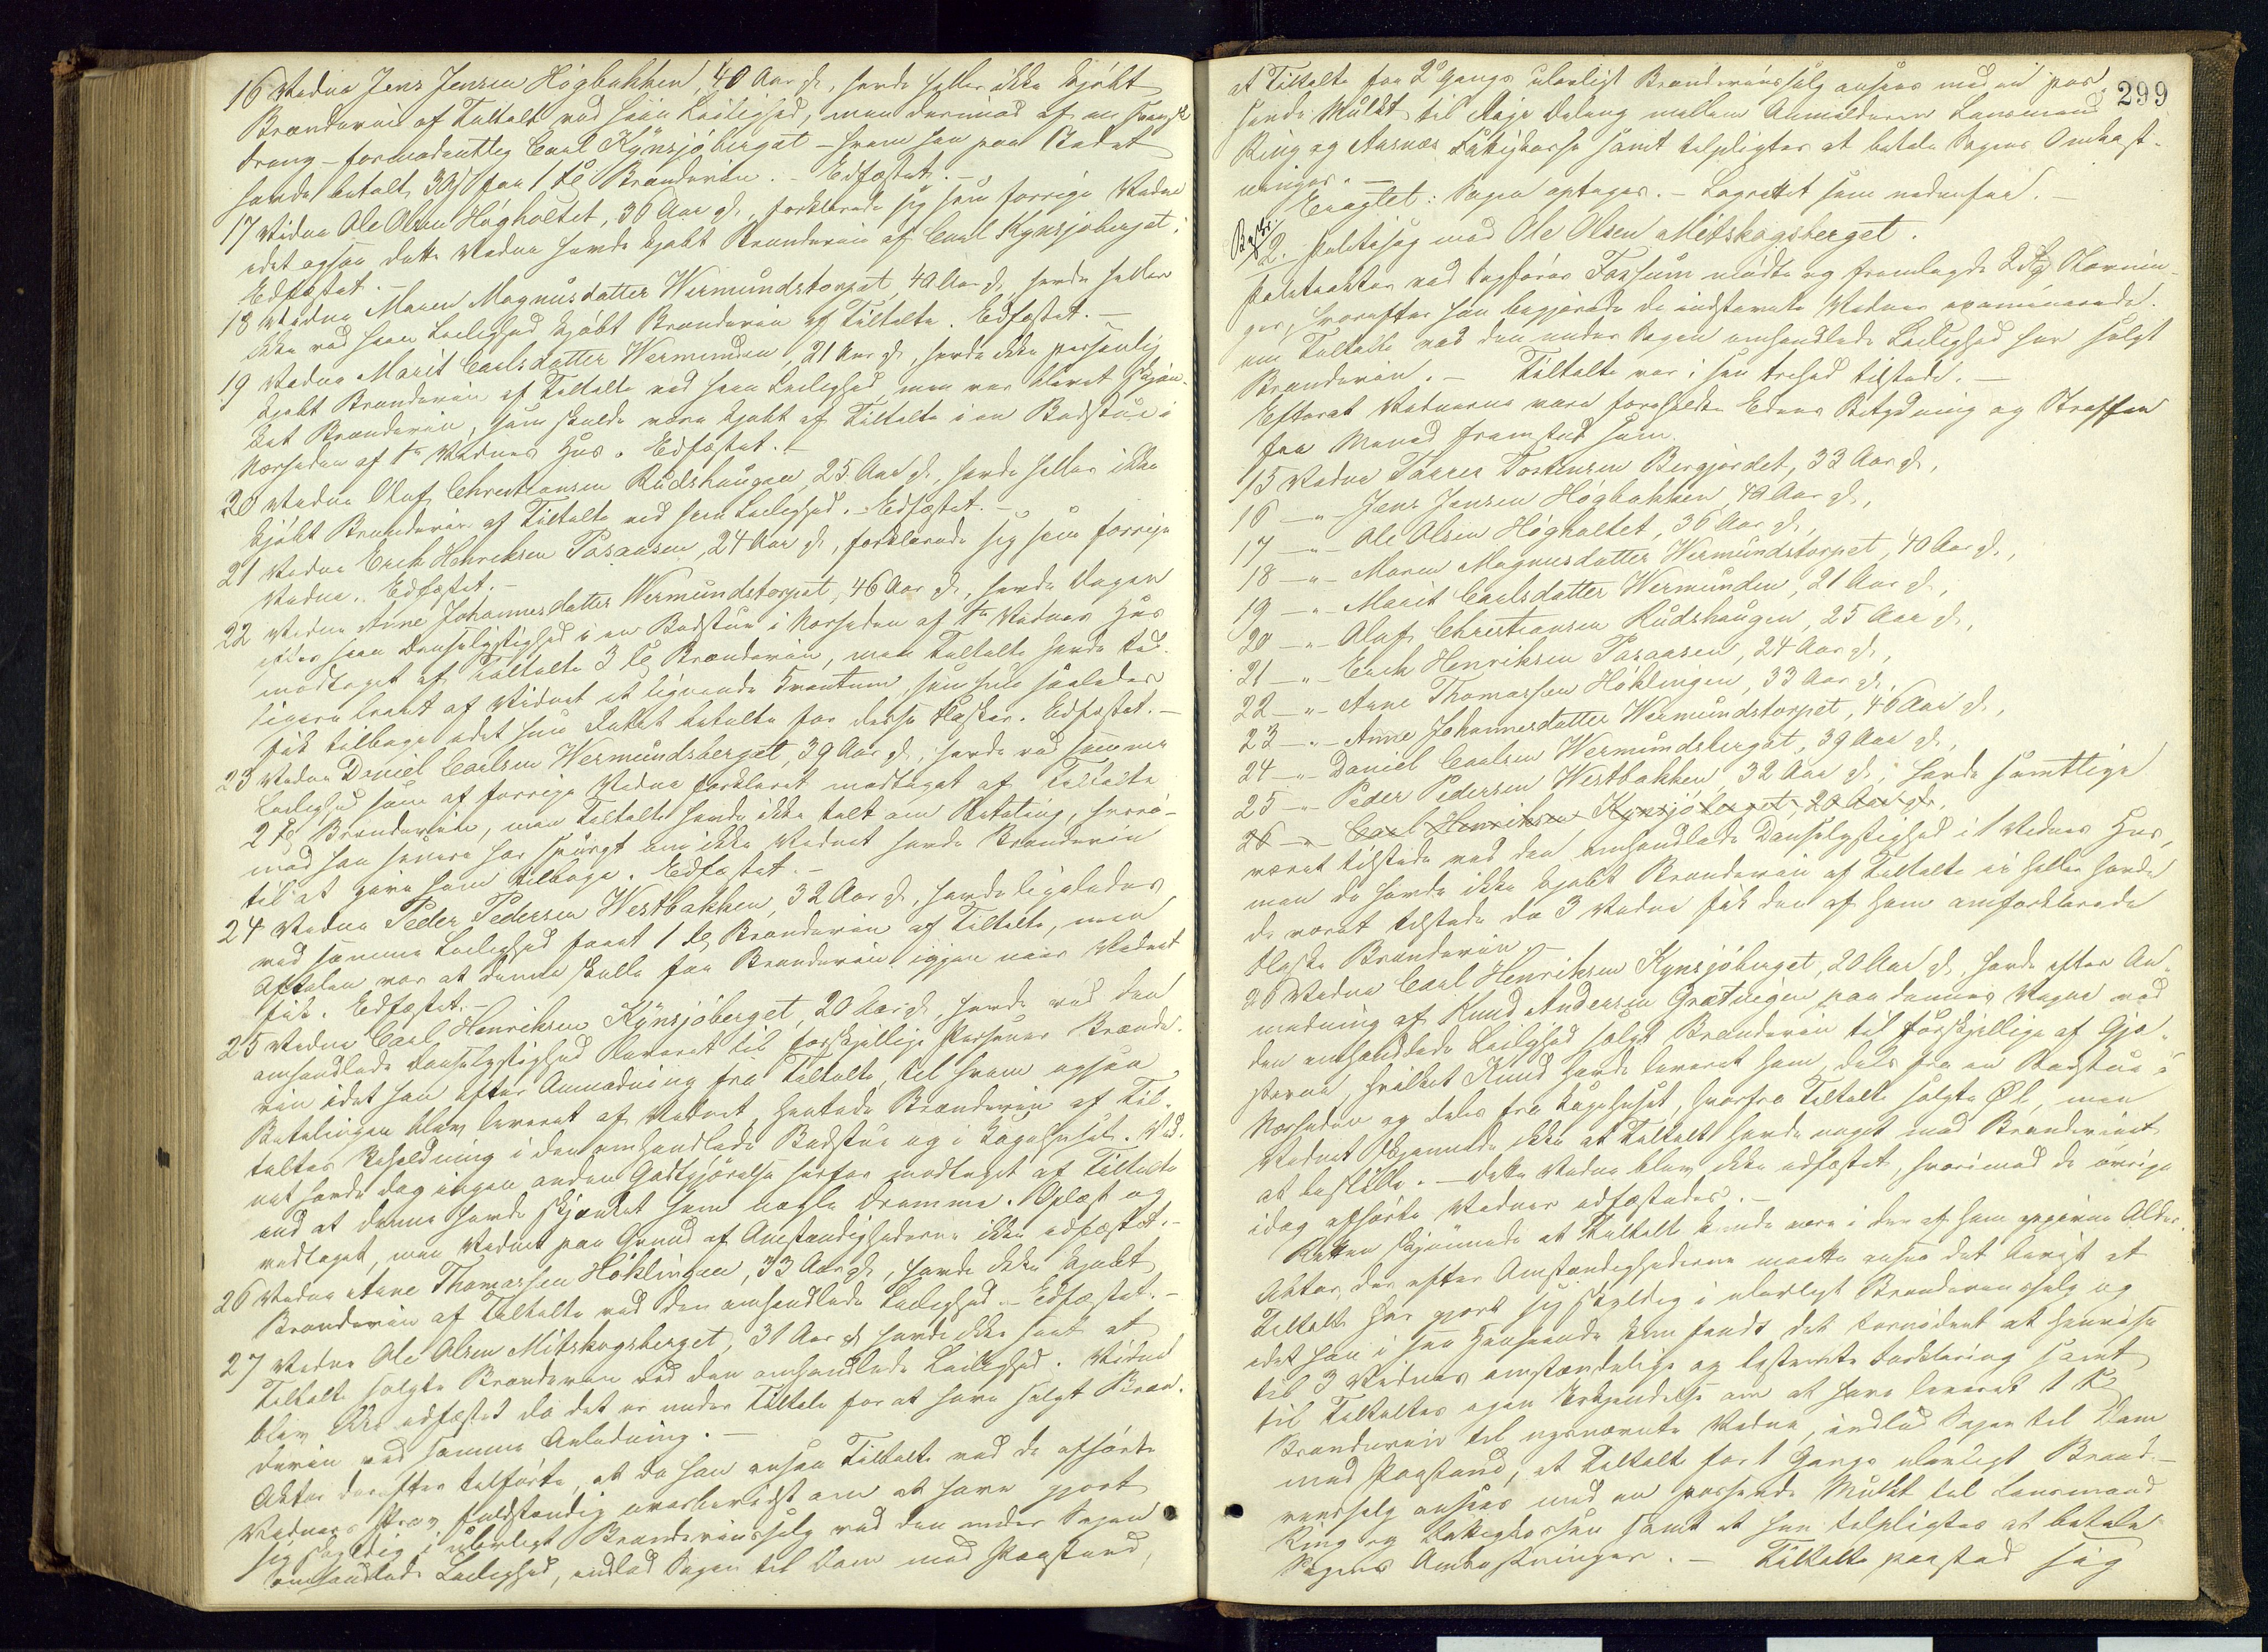 16 Vidne Jens Jensen Högbakken, 40 Aar gl., havde heller ikke kjöbt
Brændeviin af Tiltalte ved hiin Leilighed, men derimod af en svensk
dreng – formodentlig Carl Kynsjöberget – hvem han paa Stedet
havde betalt 30 s for 1 Fl Brændeviin. – Edfæstet. –
17 Vidne Ole Olsen Högholtet, 36 Aar gl., forklarede sig som forrige Vidne
idet ogsaa dette Vidne havde kjøbt Brændeviin af Carl Kynsjöberget;
Edfæstet. –
18 Vidne Maren Magnusdatter Wermundstorpet, 40 Aar gl., havde heller
ikke ved hiin Leilighed kjöbt Brændeviin af Tiltalte. Edfæstet. –
19 Vidne Marit Carlsdatter Wermunden, 21 Aar gl., havde ikke personlig
kjøbt Brændeviin af Tiltalte ved hiin Leilighed, men var blevet skjæn-
ket Brændeviin, som skulde være kjøbt af Tiltalte i en Badstue i
Nærheden af 1ste Vidnes Hus. Edfæstet. –
20 Vidne Oluf Christiansen Rudshaugen, 25 Aar gl., havde heller ikke
kjöbt Brændeviin af Tiltalte ved hiin Leilighed. – Edfæstet. –
21 Vidne Erich Henriksen Pasaasen, 24 Aar gl., forklarede sig som forrige
Vidne. Edfæstet. –
22 Vidne Anne Johannesdatter Wermundstorpet, 46 Aar gl., havde Dagen
efter hiin Dandselystighed i en Badstue i Nærheden af 1ste Vidnes Hus
modtaget af Tiltalte 3 Fl Brændeviin, men Tiltalte havde tid-
ligere laant af Vidnet et lignende Kvantum, som hun saaledes
fik tilbage idet hun Intet betalte for disse Flasker. Edfæstet. –
23 Vidne Daniel Carlsen Wermundsberget, 39 Aar gl., havde ved samme
Leilighed som af forrige Vidne forklaret modtaget af Tiltalte
2 Fl Brændeviin, men Tiltalte havde ikke talt om Betaling, hvori-
mod han senere har spurgt om ikke Vidnet havde Brændeviin
til at give ham tilbage. Edfæstet. –
24 Vidne Peder Pedersen Westbakken, 32 Aar gl., havde ligeledes
ved samme Leilighed faaet 1 Fl Brændeviin af Tiltalte, men
Aftalen var at denne skulle faae Brændeviin igjen naar Vidnet
fik. Edfæstet. –
25 Vidne Carl Henriksen Kynsjöberget, 20 Aar gl., havde ved den
omhandlede Dandselystighed leveret til forskjellige Personer Brænde-
viin idet han efter Anmodning fra Tiltalte, til hvem ogsaa
Betalingen blev leveret af Vidnet, hentede Brændeviin af Til-
taltes Beholdning i den omhandlede Badstue og i Kagehuset. Vid-
net havde dog ingen anden Godtgjörelse herfor modtaget af Tiltalte
end at denne havde skjænket ham nogle Dramme. Oplæst og
vedtaget, men Vidnet paa Grund af Omstændighederne ikke edfæstet. –
26 Vidne Arne Thomassen Höklingen, 33 Aar gl., havde ikke kjøbt
Brændeviin af Tiltalte ved den omhandlede Leilighed. – Edfæstet. –
27 Vidne Ole Olsen Mitskogsberget, 31 Aar gl., havde ikke seet at
Tiltalte solgte Brændeviin ved den omhandlede Leilighed. Vidnet
blev ikke edfæstet da det er under Tiltale for at have solgt Bræn-
deviin ved samme Anledning. –
Aktor derefter tilførte, at da han ansaa Tiltalte ved de afhørte
Vidners Prov fuldstændig overbevist om at have gjort
sig skyldig i ulovligt Brændeviinssalg ved den under Sagen
omhandlede Leilighed, indlod Sagen til Dom med Paastand,
299
at Tiltalte for 2den Gangs ulovligt Brændeviinssalg ansees med en pas-
sende Mulkt til lige Deling mellem Anmelderen Lensmand
Ring og Aasnæs Fattigkasse samt tilpligtes at betale Sagens Omkost-
ninger. –
Eragtet: Sagen optages. – Lagrettet som nedenfor. –
2. Politisag mod Ole Olsen Mitskogsberget.
Politiaktor ved Sagfører Fossum mødte og fremlagde 2 Stævnin-
ger, hvorefter han begjærede de indstævnte Vidner examinerede
om Tiltalte ved den under Sagen omhandlede Leilighed har solgt
Brændeviin. – Tiltalte var i sin Frihed tilstede. –
Efterat Vidnerne vare foreholdte Edens Betydning og Straffen
for Meened fremstod som
15 Vidne Taarer Torkensen Bergjordet, 33 Aar gl.,
16 –"– Jens Jensen Högbakken, 40 Aar gl.,
17 –"– Ole Olsen Högholtet, 36 Aar gl.,
18 –"– Maren Magnusdatter Wermundstorpet, 40 Aar gl.,
19 –"– Marit Carlsdatter Wermunden, 21 Aar gl.,
20 –"– Oluf Christiansen Rudshaugen, 25 Aar gl.,
21 –"– Erich Henriksen Pasaasen, 24 Aar gl.,
22 –"– Arne Thomassen Höklingen, 33 Aar gl.,
23 –"– Anne Johannesdatter Wermundstorpet, 46 Aar gl.,
24 –"– Daniel Carlsen Wermundsberget, 39 Aar gl.,
25 –"– Peder Pedersen Westbakken, 32 Aar gl.; havde samtlige
26 –"– Carl Henriksen Kynsjöberget, 20 Aar gl.,
været tilstede ved den omhandlede Dandselystighed i 1 Vidnes Hus,
men de havde ikke kjøbt Brændeviin af Tiltalte ei heller havde
de været tilstede da 3 Vidne fik den af ham omforklarede
Flaske Brændeviin. –
26 Vidne Carl Henriksen Kynsjöberget, 20 Aar gl., havde efter An-
modning af Knud Andersen Grætningen paa dennes Vegne ved
den omhandlede Leilighed solgt Brændeviin til forskjellige af Gjæ-
sterne, hvilket Knud havde leveret ham, dels fra en Badstue i
Nærheden og dels fra Kagehuset, hvorfra Tiltalte solgte Øl, men
Vidnet skjønnede ikke at Tiltalte havde noget med Brændevinet
at bestille. – Dette Vidne blev ikke edfæstet, hvorimod de øvrige
idag afhørte Vidner edfæstedes. –
Retten skjønnede at Tiltalte kunde være i den af ham opgivne Alder.
Aktor, der efter Omstændighederne maatte ansee det bevist at
Tiltalte har gjort sig skyldig i ulovligt Brændeviinssalg og
idet han i saa Henseende kun fandt det fornödent at henvise
til 3 Vidnes omstændelige og bestemte Forklaring samt
til Tiltaltes egen Erkjendelse om at have leveret 1 Fl
Brændeviin til ogsnævnte Vidne, indlod Sagen til Dom
med Paastand, at Tiltalte for 1 Gangs ulovligt Brænde-
viinssalg ansees med en passende Mulkt til Lensmand
Ring og Fattigkassen samt at han tilpligtes at betale
Sagens Omkostninger. – Tiltalte paastod sig